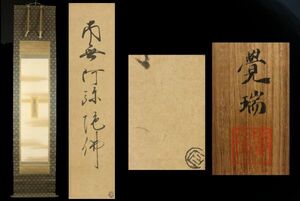 南無阿弥陀佛
覺瑞